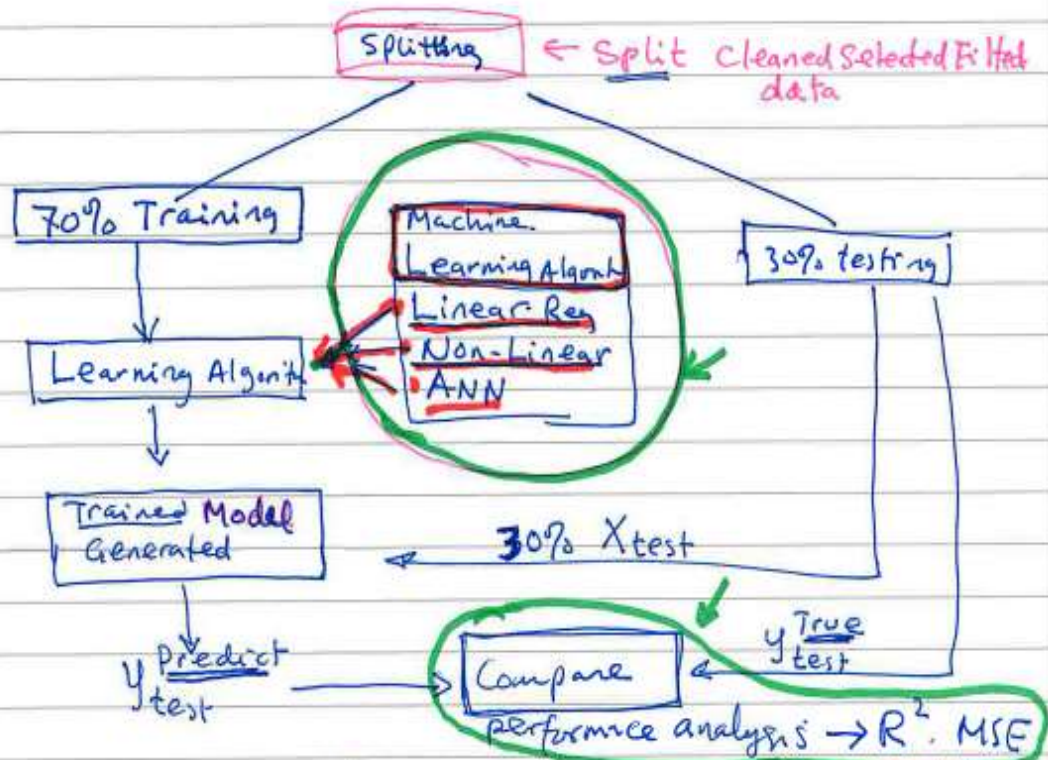 Splitting
← Split Cleaned Selected Filted
data
70% Training
Machine
Learning Algorith
Linear Reg
Non-Linear
ANN
30% testing
Learning Algorith
Trained Model
Generated
30% Xtest
y test Predict
Compare
y test True
performce analysis → R². MSE